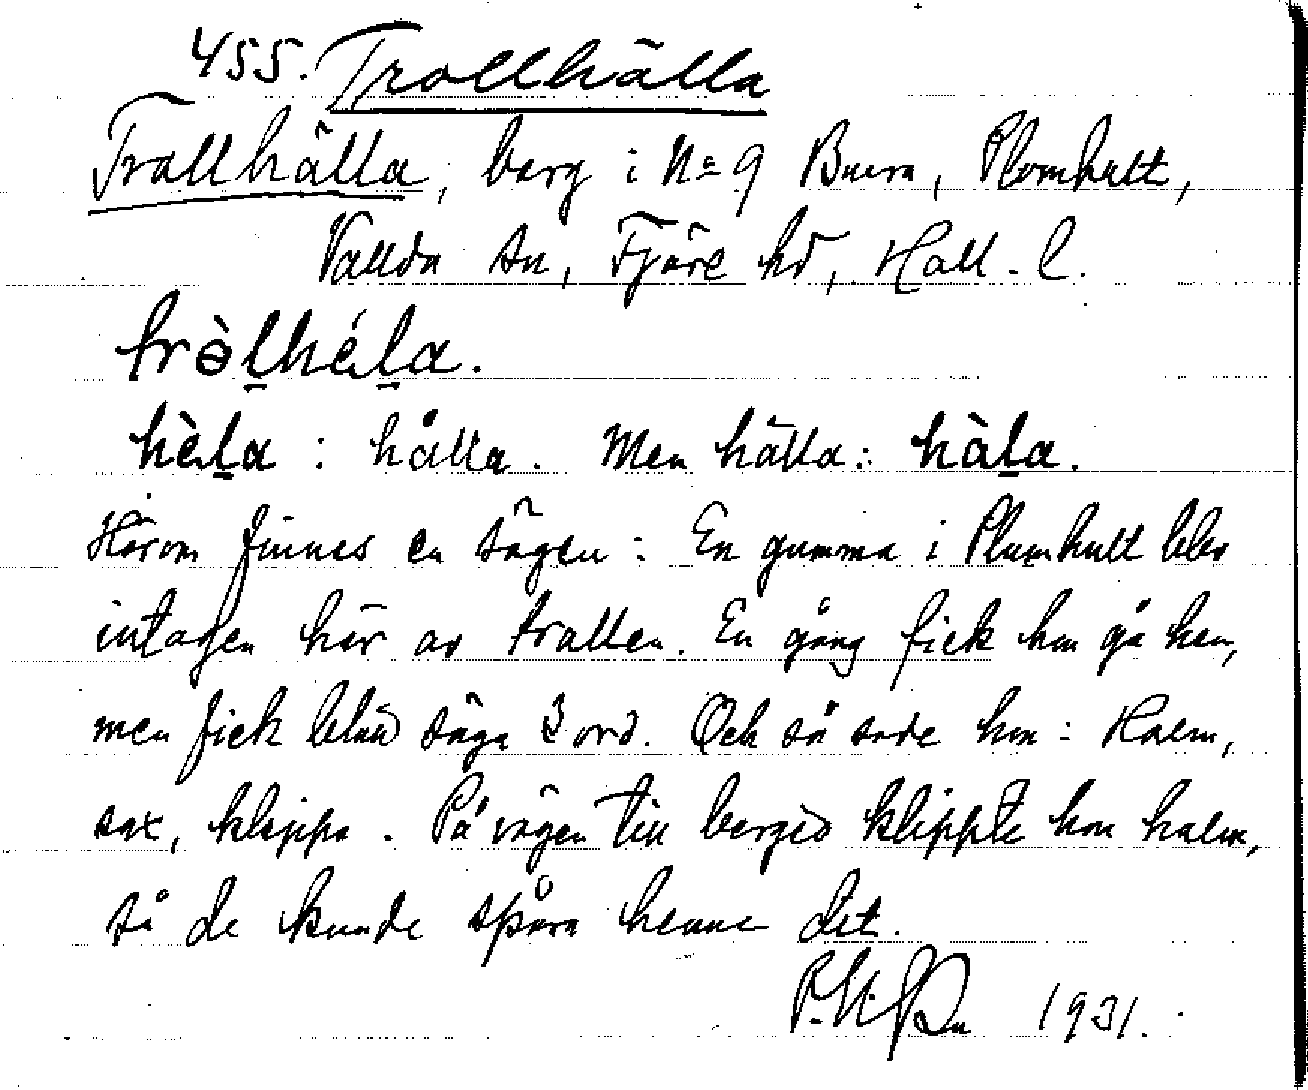 455. Trollhälla
Trollhälla, berg i No 9 Buera, Plomhult,
Vallda sn, Fjäre hd, Hall. l.
trə̀l̠hél̠a.
hèl̠a : hålla. Men hälla: hàl̠a.
Härom finnes en sägen: En gumma i Plumhult blev
intagen här av trollen. En gång fick hon gå hem,
men fick blott säga 3 ord. Och så sade hon: Halm,
sax, klippa. På vägen till berget klippte hon halm,
så de kunde spåra henne dit.
1931.